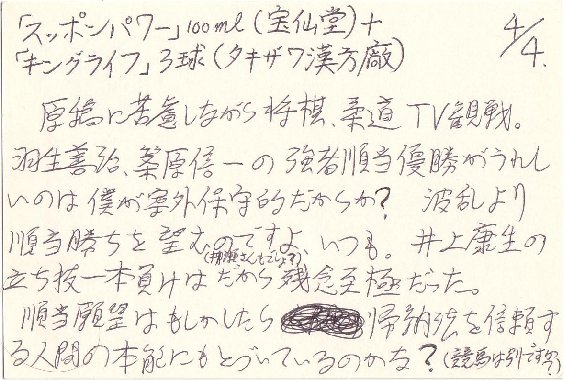 「スッポンパワー」100ml(宝仙堂)+
「キングライフ」3球(タキザワ漢方廠)
4/4.
原稿に苦慮しながら将棋、柔道TV観戦。
羽生善治、篠原信一の強者順当優勝がうれし
いのは僕が案外保守的だからか? 波乱より
順当勝ちを望むのですよ、いつも。井上康生の
(さんもでしょ?)
立ち技一本負けはだから残念至極だった。
順当願望はもしかしたら帰納法を信頼す
る人間の本能にもとづいているのかな?(競馬は別ですが)